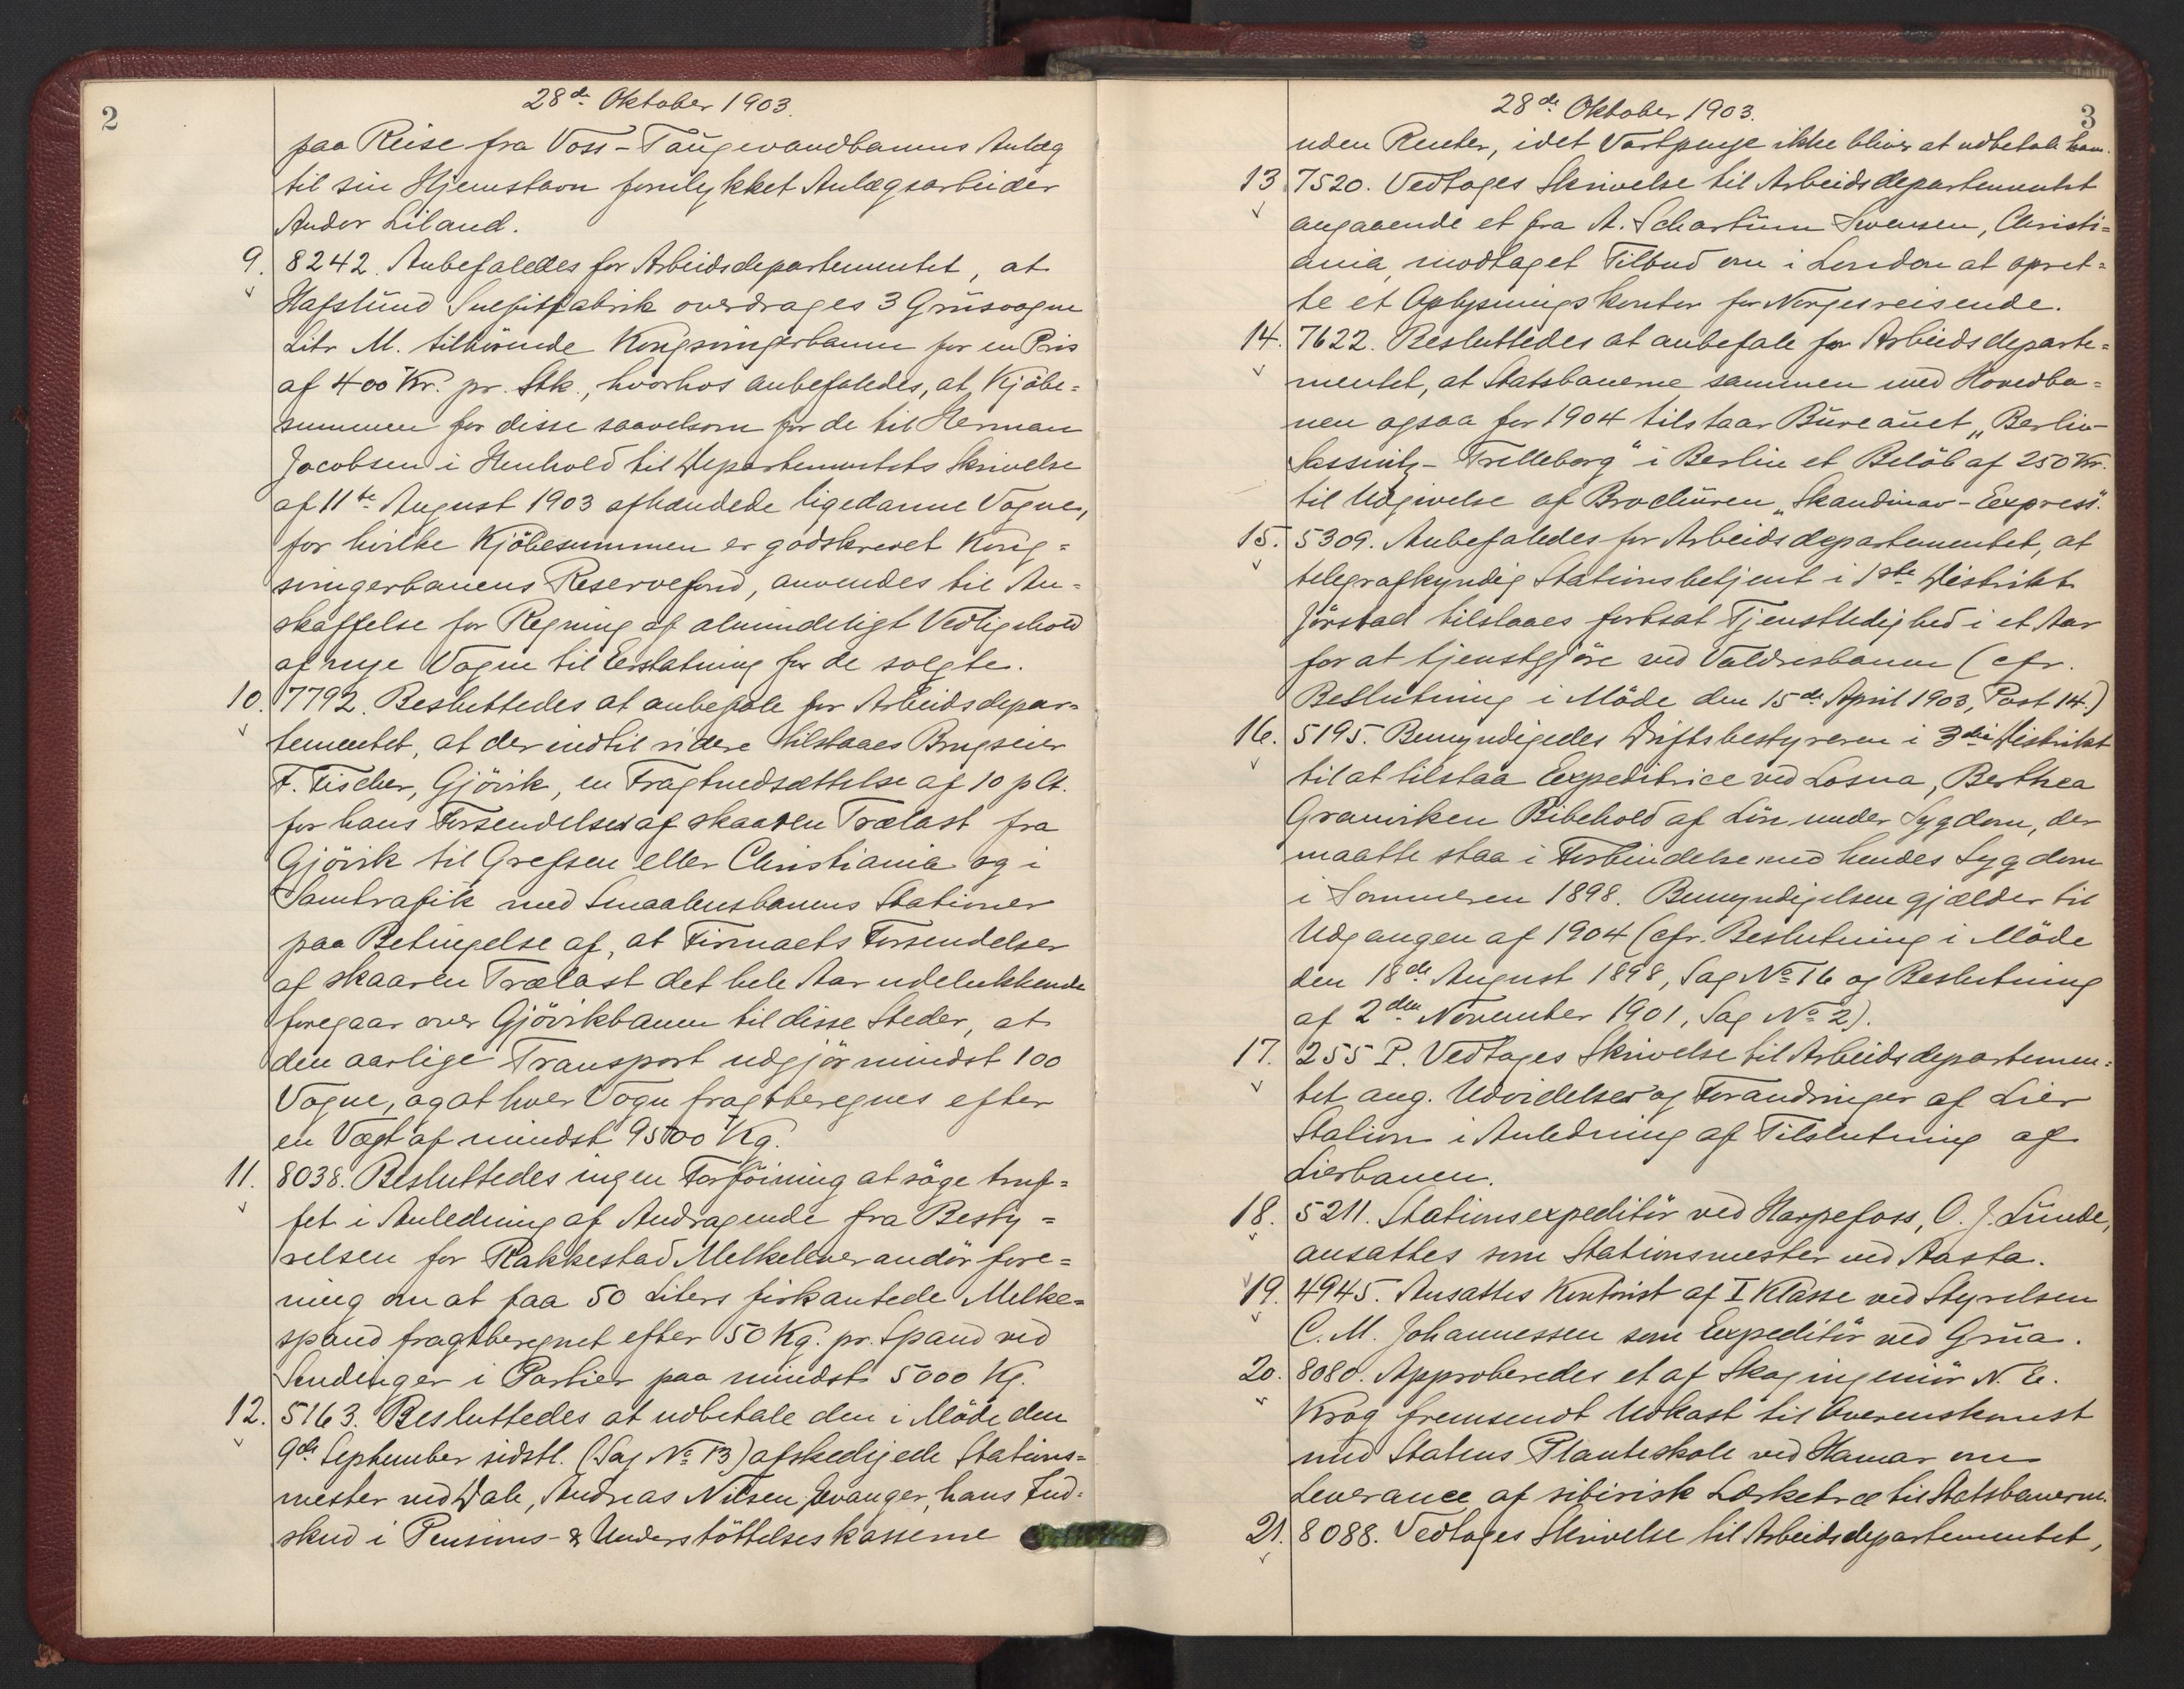 2
28de Oktober 1903.
paa Reise fra Voss-Taugevandbanens Anlæg
til sin Hjemstavn forulykket Anlægsarbeider
Andor Liland.
9. 8242. Anbefaledes for Arbeidsdepartementet, at
Hafslund Sulfitfabrik overdrages 3 Grusvogne
Litr M. tilhörende Kongsvingerbanen for en Pris
af 400 Kr. pr. Stk., hvorhos anbefaledes, at Kjöbe-
summen for disse saavelsom for de til Herman
Jacobsen i Henhold til Departementets Skrivelse
af 11te August 1903 afhændede ligedanne Vogne,
for hvilke Kjöbesummen er godskrevet Kong-
svingerbanens Reservefond, anvendes til An-
skaffelse for Regning af almindeligt Vedligehold
af nye Vogne til Erstatning for de solgte.
10. 7792. Besluttedes at anbefale for Arbeidsdepar-
tementet, at der indtil videre tilstaaes Brugseier
F. Fischer, Gjövik, en Fragtnedsættelse af 10 pCt.
for hans Forsendelser af skaaren Trælast fra
Gjövik til Grefsen eller Christiania og i
Samtrafik med Smaalensbanens Stationer
paa Betingelse af, at Firmaets Forsendelser
af skaaren Trælast det hele Aar udelukkende
foregaar over Gjövikbanen til disse Steder, at
den aarlige Transport udgjör mindst 100
Vogne, og at hver Vogn fragtberegnes efter
en Vægt af mindst 9500 Kg.
11. 8038. Besluttedes ingen Forföining at söge truf-
fet i Anledning af Andragende fra Besty-
relsen for Rakkestad Melkeleverandörfore-
ning om at faa 50 Liters firkantede Melke-
spand fragtberegnet efter 50 Kg. pr. Spand ved
Sendinger i Partier paa mindst 5000 Kg.
12. 5163. Besluttedes at udbetale den i Möde den
9de September sidstl. (Sag No 13) afskedigede Stations-
mester ved Dale, Andreas Nilsen Evanger, hans Ind-
skud i Pensions- & Understöttelseskasserne
3
28de Oktober 1903.
uden Renter, idet Vartpenge ikke bliver at udbetale ham.
13. 7520. Vedtages Skrivelse til Arbeidsdepartementet
angaaende et fra A. Schartum Svensen, Christi-
ania, modtaget Tilbud om i London at opret-
te et Oplysningskontor for Norgesreisende.
14. 7622. Besluttedes at anbefale for Arbeidsdeparte-
mentet, at Statsbanerne sammen med Hovedba-
nen ogsaa for 1904 tilstaar Bureauet "Berlin-
Sassnitz-Trelleborg" i Berlin et Belöb af 250 Kr.
til Udgivelse af Brochuren "Skandinav-Express".
15. 5309. Anbefaledes for Arbeidsdepartementet, at
telegrafkyndig Stationsbetjent i 1ste Distrikt
Jörstad tilstaaes fortsat Tjenstledighed i et Aar
for at tjenstgjöre ved Valdresbanen (cfr.
Beslutning i Möde den 15de April 1903, Post 14.)
16. 5195. Bemyndigedes Driftsbestyreren i 3die Distrikt
til at tilstaa Expeditrice ved Losna, Berthea
Granviken Bibehold af Lön under Sygdom, der
maatte staa i Forbindelse med hendes Sygdom
i Sommeren 1898. Bemyndigelsen gjælder til
Udgangen af 1904 (cfr. Beslutning i Möde
den 18de August 1898, Sag No 16 og Beslutning
af 2den November 1901, Sag No 2).
17. 255 P. Vedtages Skrivelse til Arbeidsdepartemen-
tet ang. Udvidelser og Forandringer af Lier
Station i Anledning af Tilslutning af
Lierbanen.
18. 5211. Stationsexpeditör ved Harpefoss, O. J. Lunde,
ansattes som Stationsmester ved Aasta.
19. 4945. Ansattes Kontorist af I Klasse ved Styrelsen
C. M. Johannessen som Expeditör ved Grua.
20. 8080. Approberedes et af Skogingeniör N. E.
Krog fremsendt Udkast til Overenskomst
med Statens Planteskole ved Hamar om
Leverance af sibirisk Lærketræ til Statsbanerne.
21. 8088. Vedtages Skrivelse til Arbeidsdepartementet,